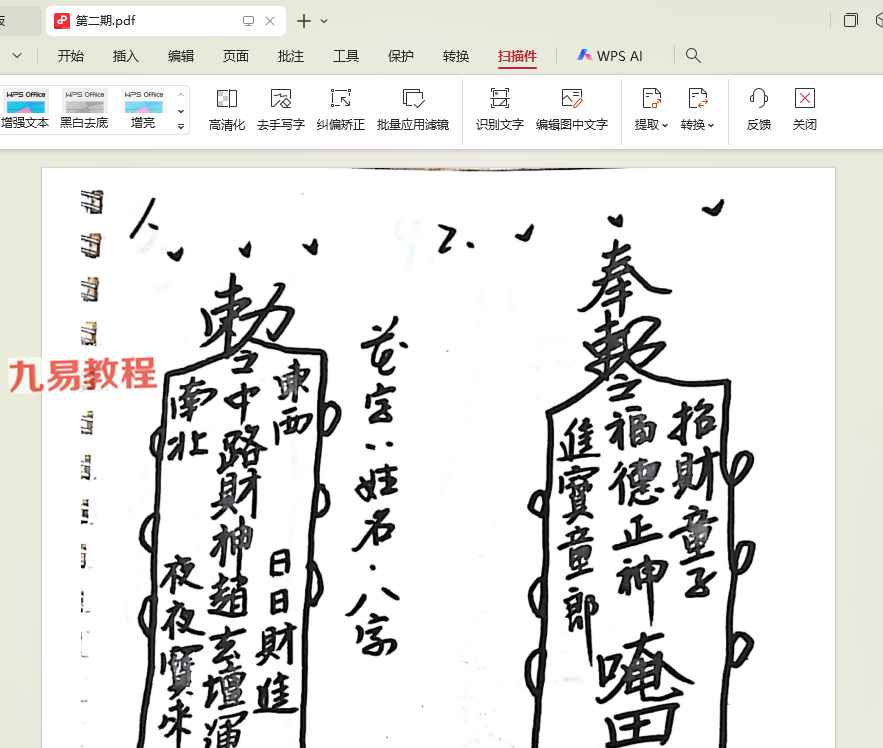 第二期.pdf
开始 插入 编辑 页面 批注 工具 保护 转换 扫描件 WPS AI
WPS Office WPS Office WPS Office
增强文本 黑白去底 增亮 高清化 去手写字 纠偏矫正 批量应用滤镜 识别文字 编辑图中文字 提取 转换 反馈 关闭
九易教程
1.
勅令
東西
南北
中路財神趙玄壇運
日日財進
夜夜寶來
花字:姓名·八字
2.
奉勅令
招財童子
福德正神
進寶童郎
唵田